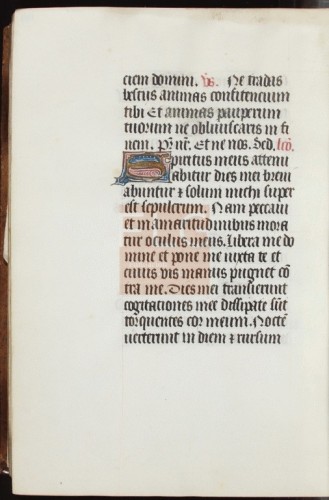 ciem domini. vs. Ne tradas
bestiis animas confitencium
tibi Et animas pauperum
tuorum ne obliuiscaris in fi
nem. Pr̄ nr̄. Et ne nos. Sed. lcō.
Spiritus meus attenu
abitur dies mei breui
abuntur ⁊ solum michi super
est sepulcrum. Nam peccaui
et in amaritudinibus mora
tur oculus meus. Libera me do
mine et pone me iuxta te et
cuius vis manus pugnet cō
tra me. Dies mei transierunt
cogitationes mee dissipate sūt
torquentes cor meum. Noctē
uerterunt in diem ⁊ rursum